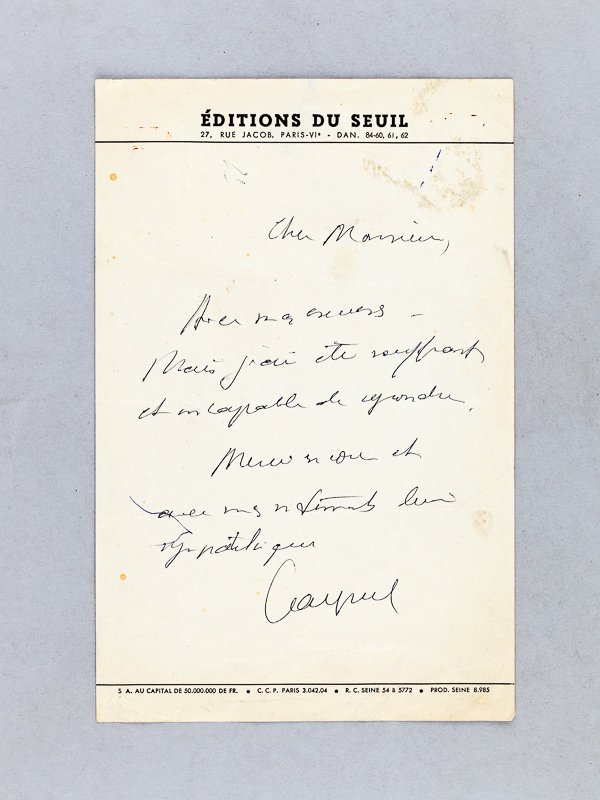 ÉDITIONS DU SEUIL
27, RUE JACOB, PARIS-VIe - DAN. 84-60, 61, 62
Cher Monsieur,
Avec mes excuses -
Mais j'ai été souffrant
et incapable de répondre.
Merci encore et
avec mes sentiments bien
sympathiques
S A. AU CAPITAL DE 50.000.000 DE FR. ● C.C.P. PARIS 3.042.04 ● R.C. SEINE 54 B 5772 ● PROD. SEINE 8.985